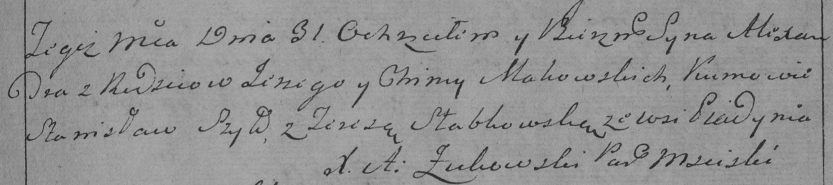 Tegiż Mca Dnia 31. Ochrzciłem y Bierzm. Syna Alexan
Dra z Rodzicow Jerzego y Chimy Makowskich, Kumowie
Stanisław Szyd, z Teresą Stabkowską ze wsi
X. A. Żukowski Par Msciski